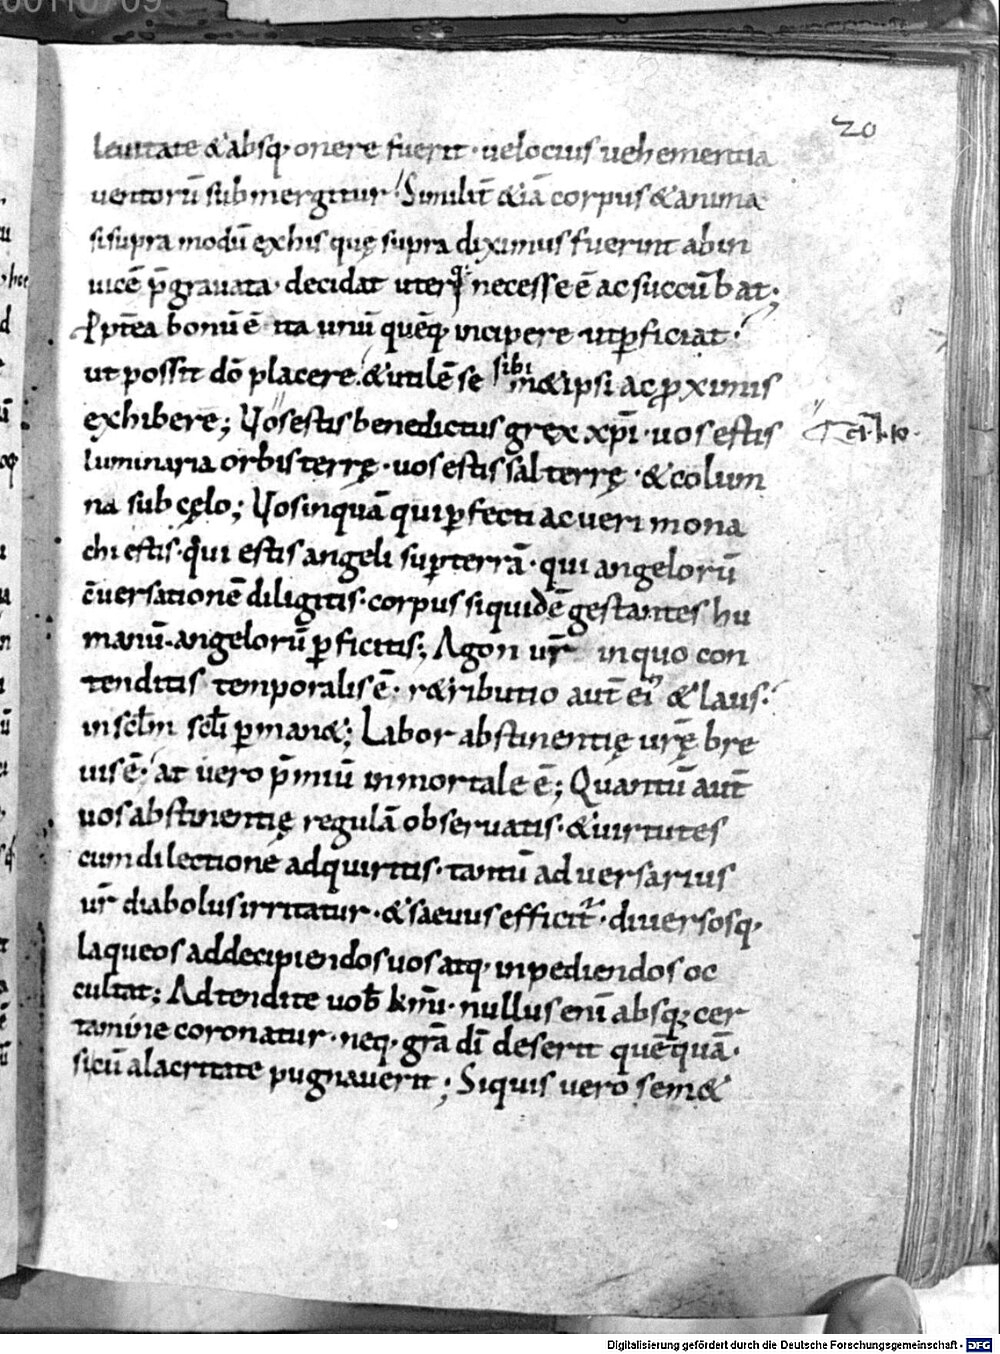 20
leuitate & absq· onere fuerit· uelocius uehementia
uentorū submergitur· Similit̄ & iā corpus & anima
si supra modū ex his quę supra diximus fuerint ab in
uicē p̄grauata· decidat uterq· necesse ē ac succūbat;
Propt̄ea bonū ē ita unū quēq· incipere ut ꝑficiat·
ut possit dō placere· & utilē se sibim& ipsi ac ꝓximis
exhibere; Uos estis benedictus grex xp̄i· uos estis
luminaria orbis terrę· uos estis sal terrę· & colum
na sub cęlo; Uos inquā qui ꝑfecti ac ueri mona
chi estis· qui estis angeli suꝑ terrā· qui angelorū
c̄uersationē diligitis· corpus siquidē gestantes hu
manū· angelorū ꝑficitis; Agon ur̄ in quo con
tenditis temporalis ē· r&ributio aut̄ ei' & laus·
in sc̄lm sc̄li ꝑman&; Labor abstinentię urę̄ bre
uis ē· at uero p̄miū inmortale ē; Quantū aut̄
uos abstinentię regulā obseruatis· & uirtutes
cum dilectione adquiritis· tantū aduersarius
ur̄ diabolus irritatur· & saeuus efficit̄· diuersosq·
laqueos ad decipiendos uos atq· inpediendos oc
cultat; Adtendite uob̄ km̄i· nullus enī absq; cer
tamine coronatur· neq· gr̄a dī deserit quēquā·
si cū alacritate pugnauerit; Siquis uero sem&
Digitalisierung gefördert durch die Deutsche Forschungsgemeinschaft · DFG